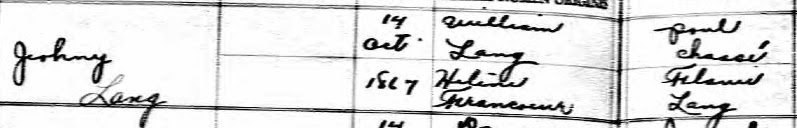 Johny
Lang
14
Oct.
1867
William
Lang
Helène
Francoeur
Paul
Chassé
Lang
14